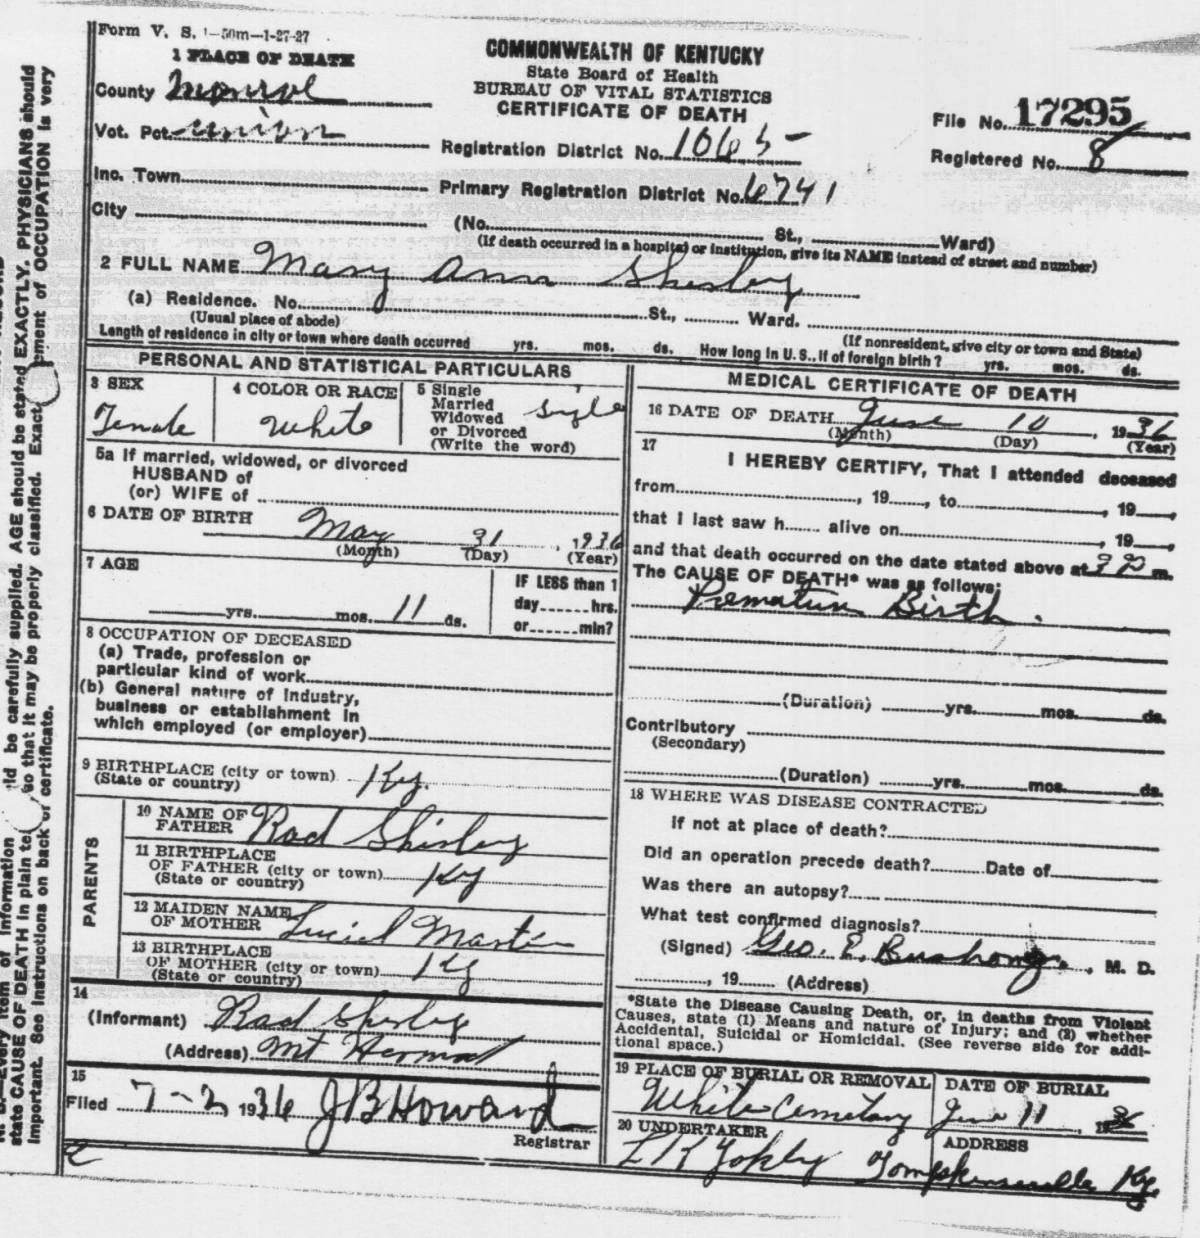 Form V. S. 1-50m-1-27-27
1 PLACE OF DEATH
County Monroe
Vot. Pct. Union
Inc. Town
City
COMMONWEALTH OF KENTUCKY
State Board of Health
BUREAU OF VITAL STATISTICS
CERTIFICATE OF DEATH
Registration District No. 1065
Primary Registration District No. 6741
File No. 17295
Registered No. 8
(No. St., Ward)
(If death occurred in a hospital or institution, give its NAME instead of street and number)
2 FULL NAME Mary Ann Shirley
(a) Residence. No. St., Ward.
(Usual place of abode) (If nonresident, give city or town and State)
Length of residence in city or town where death occurred yrs. mos. ds. How long in U. S., if of foreign birth? yrs. mos. ds.
PERSONAL AND STATISTICAL PARTICULARS
3 SEX Female
4 COLOR OR RACE White
5 Single
Married
Widowed
or Divorced
(Write the word)
Single
5a If married, widowed, or divorced
HUSBAND of
(or) WIFE of
6 DATE OF BIRTH May 31, 1936
(Month) (Day) (Year)
7 AGE
yrs. mos. 11 ds.
IF LESS than 1
day hrs.
or min?
8 OCCUPATION OF DECEASED
(a) Trade, profession or
particular kind of work
(b) General nature of Industry,
business or establishment in
which employed (or employer)
9 BIRTHPLACE (city or town) Ky.
(State or country)
PARENTS
10 NAME OF
FATHER Rad Shirley
11 BIRTHPLACE
OF FATHER (city or town) Ky
(State or country)
12 MAIDEN NAME
OF MOTHER Luciel Martin
13 BIRTHPLACE
OF MOTHER (city or town) Ky
(State or country)
14
(Informant) Rad Shirley
(Address) Mt Hermon
15
Filed 7-2 1936 J B Howard
Registrar
MEDICAL CERTIFICATE OF DEATH
16 DATE OF DEATH June 10, 1936
(Month) (Day) (Year)
17
I HEREBY CERTIFY, That I attended deceased
from , 19 , to , 19 ,
that I last saw h alive on , 19 ,
and that death occurred on the date stated above at 3 P m.
The CAUSE OF DEATH* was as follows:
Premature Birth.
(Duration) yrs. mos. ds.
Contributory
(Secondary)
(Duration) yrs. mos. ds.
18 WHERE WAS DISEASE CONTRACTED
if not at place of death?
Did an operation precede death? Date of
Was there an autopsy?
What test confirmed diagnosis?
(Signed) Geo. E. Bushong, M. D.
, 19 (Address)
*State the Disease Causing Death, or, in deaths from Violent
Causes, state (1) Means and nature of Injury; and (2) whether
Accidental, Suicidal or Homicidal. (See reverse side for addi-
tional space.)
19 PLACE OF BURIAL OR REMOVAL
White Cemetary
DATE OF BURIAL
June 11, 1936
20 UNDERTAKER
ADDRESS
Tompkinsville Ky.
ld be carefully supplied. AGE should be stated EXACTLY. PHYSICIANS should
state CAUSE OF DEATH in plain te so that it may be properly classified. Exact ement of OCCUPATION is very
important. See instructions on back of certificate.